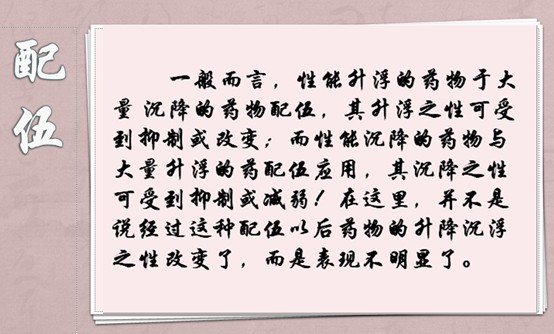 配伍
一般而言，性能升浮的药物于大
量沉降的药物配伍，其升浮之性可受
到抑制或改变；而性能沉降的药物与
大量升浮的药配伍应用，其沉降之性
可受到抑制或减弱！在这里，并不是
说经过这种配伍以后药物的升降沉浮
之性改变了，而是表现不明显了。